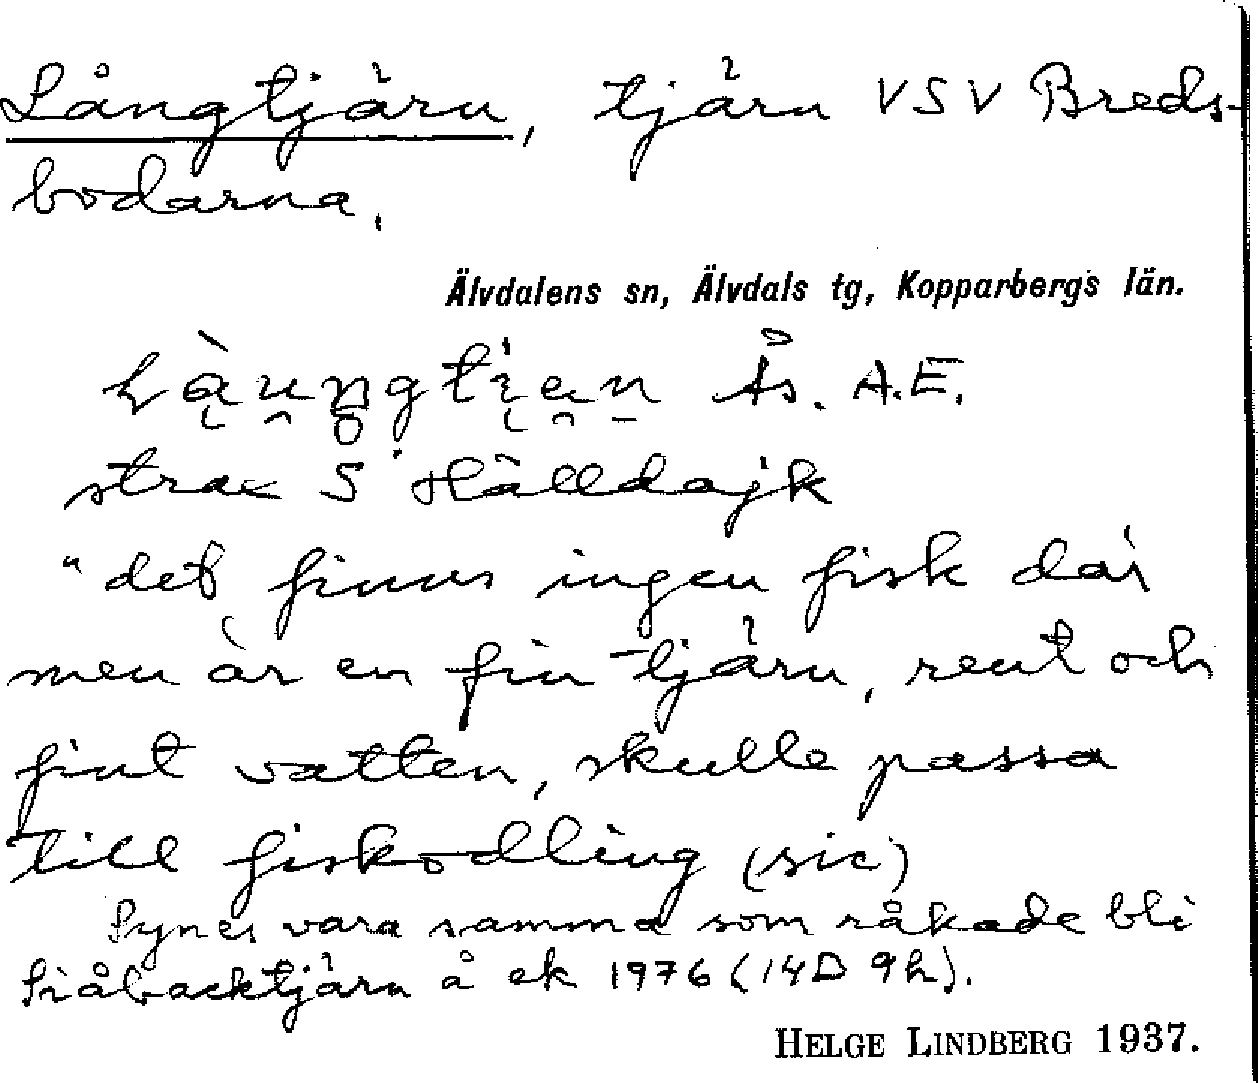 Långtjärn, tjärn VSV Breds-
bodarna.
Älvdalens sn, Älvdals tg, Kopparbergs län.
Ås. A.E.
strax S Hälldajk
"det finns ingen fisk där
men är en fin tjärn, rent och
fint vatten, skulle passa
till fiskodling (sic)
Synes vara samma som råkade bli
å ek 1976 (14D 9h).
HELGE LINDBERG 1937.